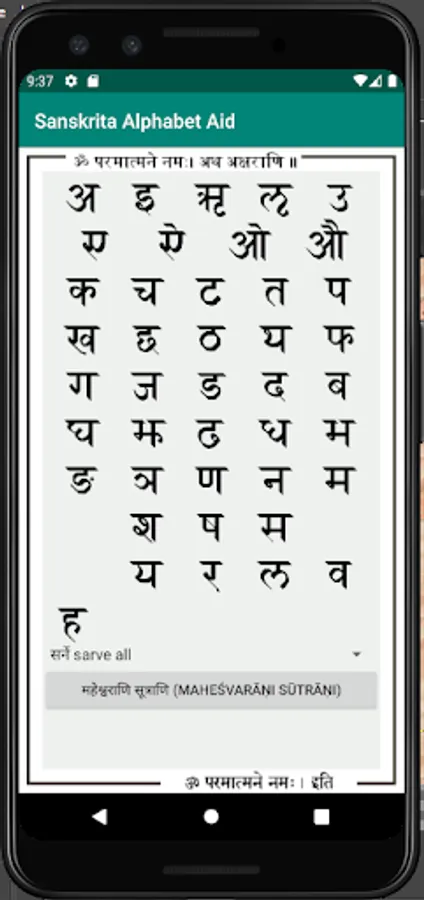 9:37
Sanskrita Alphabet Aid
ॐ परमात्मने नमः। अथ अक्षराणि ॥
अ इ ऋ ऌ उ
ए ऐ ओ औ
क च ट त प
ख छ ठ थ फ
ग ज ड द ब
घ झ ढ ध भ
ङ ञ ण न म
श ष स
य र ल व
ह
सर्वे sarve all
महेश्वराणि सूत्राणि (MAHEŚVARĀṆI SŪTRĀṆI)
ॐ परमात्मने नमः। इति